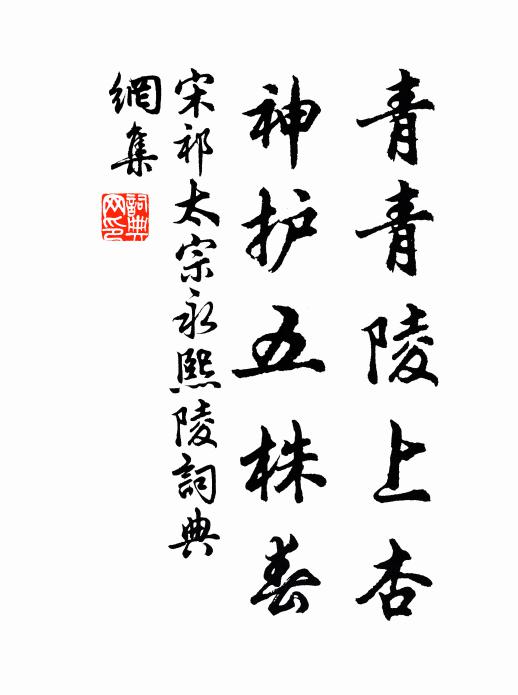 青青陵上杏
神护五株春
宋祁太宗永熙陵詞典
網集
詞典
网印